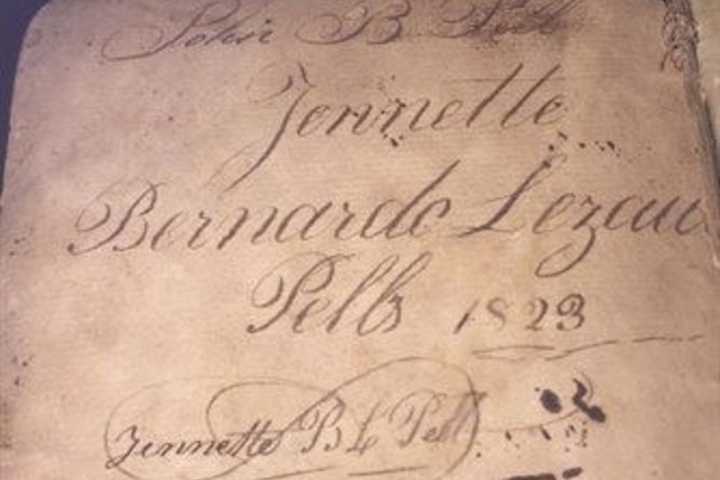 John B Pell
Jennette
Bernardo Lezau
Pells 1823
Jennette B L Pell